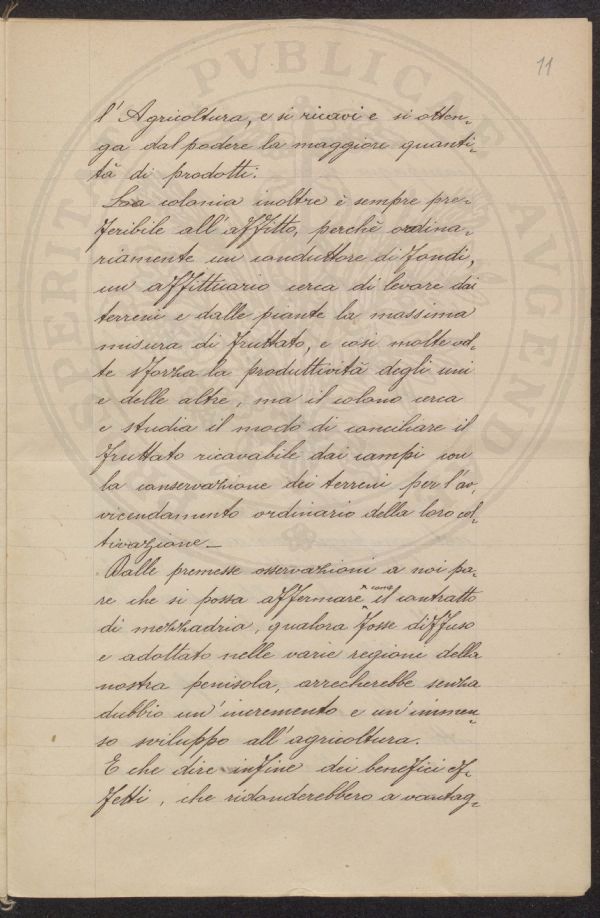 11
l'Agricoltura, e si ricavi e si otten-
ga dal podere la maggiore quanti-
tà di prodotti.
La colonia inoltre è sempre pre-
feribile all'affitto, perchè ordina-
riamente un conduttore di fondi,
un affittuario cerca di levare dai
terreni e dalle piante la massima
misura di fruttato, e così molte vol-
te sforza la produttività degli uni
e delle altre, ma il colono cerca
e studia il modo di conciliare il
fruttato ricavabile dai campi con
la conservazione dei terreni per l'av-
vicendamento ordinario della loro col-
tivazione_
Dalle premesse osservazioni a noi pa-
re che si possa affermare come il contratto
di mezzadria, qualora fosse diffuso
e adottato nelle varie regioni della
nostra penisola, arrecherebbe senza
dubbio un'incremento e un'immen-
so sviluppo all'agricoltura.
E che dire infine dei benefici ef-
fetti, che ridonderebbero a vantag-
PVBLICAE
PROSPERITATI
AVGENDAE